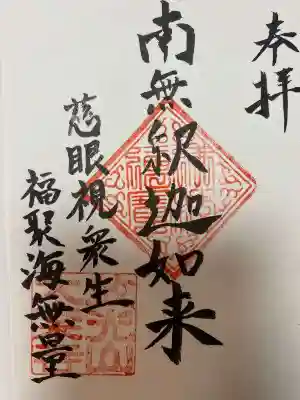 奉拝
南無釈迦如来
慈眼視衆生
福聚海無量